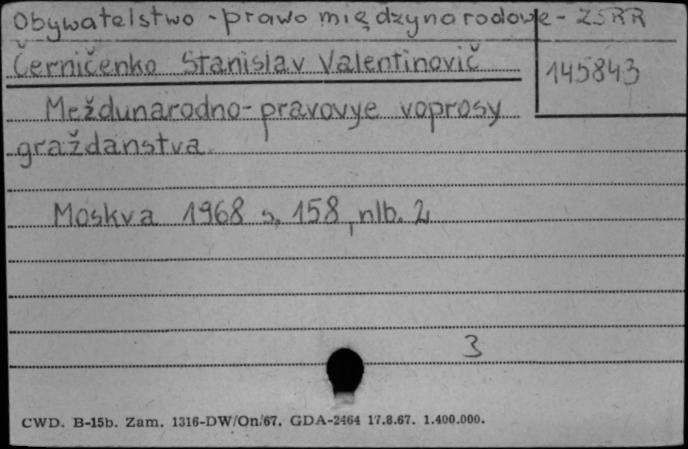 Obywatelstwo - prawo międzynarodowe - ZSRR
Černičenko Stanislav Valentinovič
145843
Meždunarodno-pravovye voprosy
graždanstva
Moskva 1968 s. 158, nlb. 2
3
CWD. B-15b. Zam. 1316-DW/On/67. GDA-2464 17.8.67. 1.400.000.